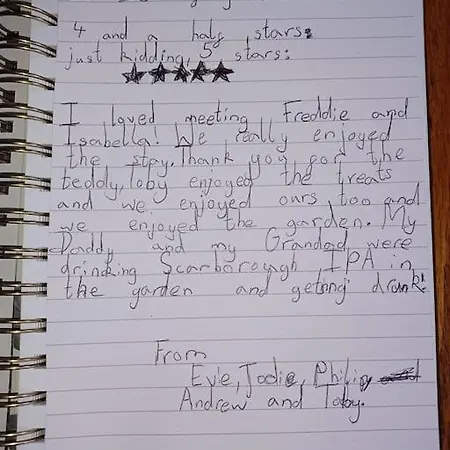 4 and a half stars:
just kidding, 5 stars:
★★★★★
I loved meeting Freddie and
Isabella! We really enjoyed
the stay. Thank you for the
teddy, Toby enjoyed the treats
and we enjoyed ours too and
we enjoyed the garden. My
Daddy and my Grandad were
drinking Scarborough IPA in
the garden and geting drunk!
From
Evie, Jodie, Philip
Andrew and Toby.